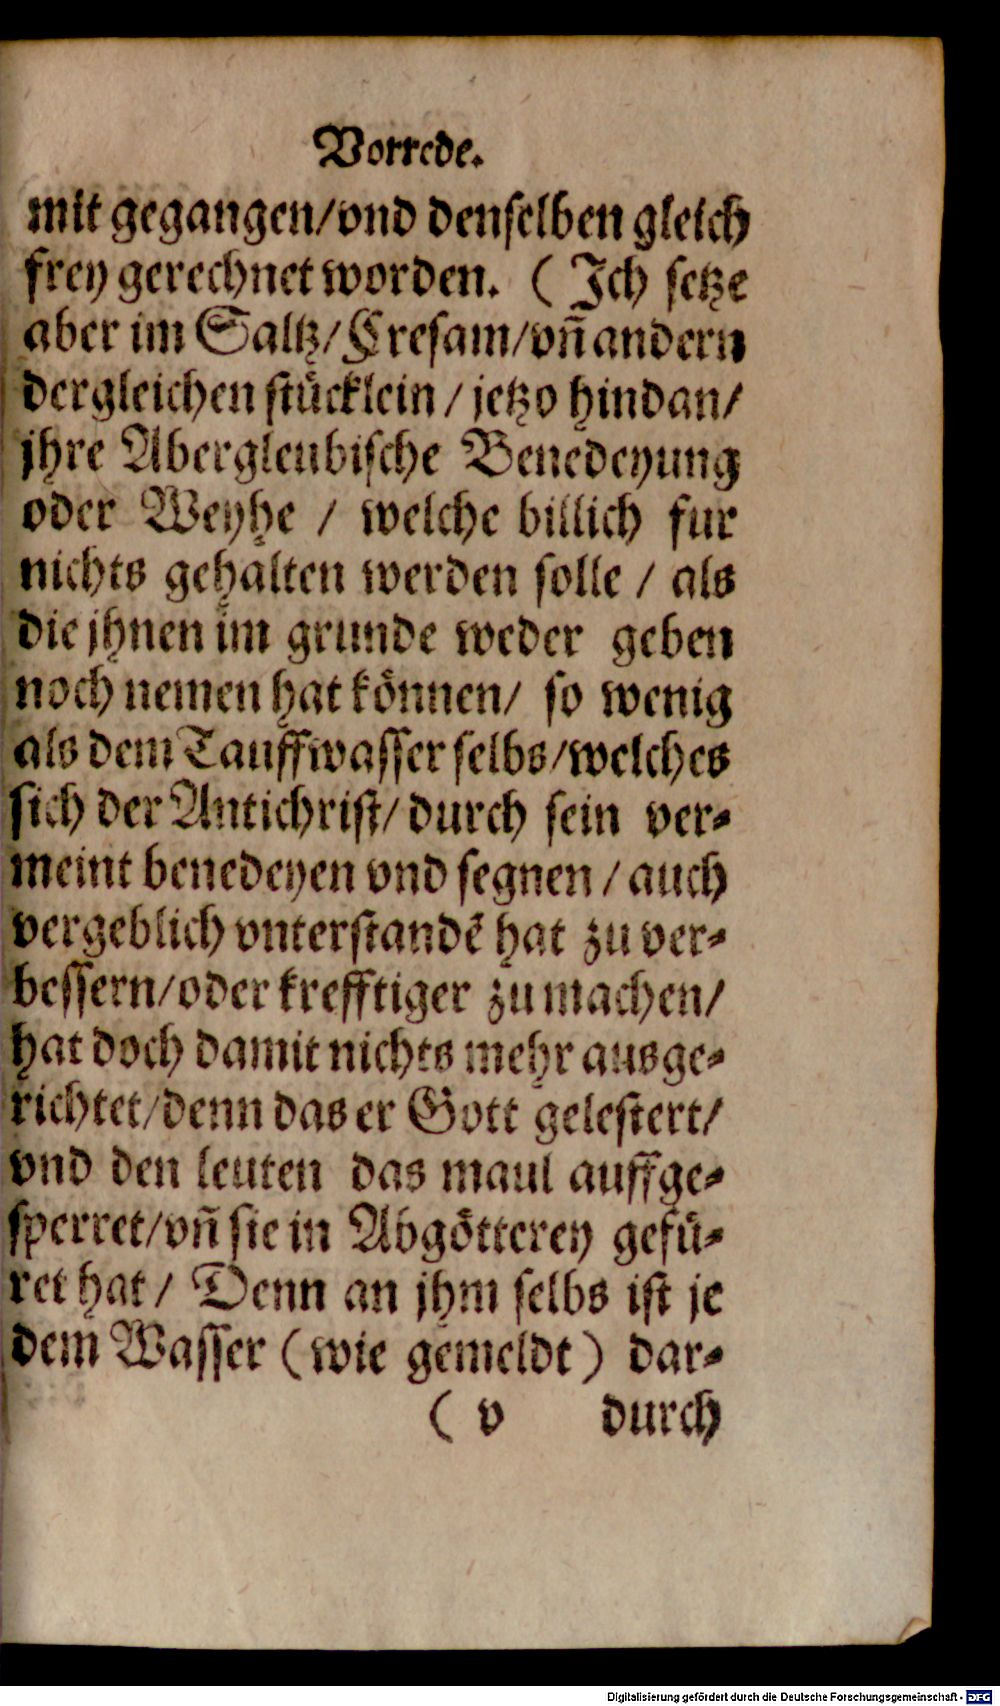 Vorrede.
mit gegangen/vnd denselben gleich
frey gerechnet worden. (Ich setze
aber im Saltz/Cresam/vñ andern
dergleichen stücklein / jetzo hindan/
jhre Abergleubische Benedeyung
oder Weyhe / welche billich fur
nichts gehalten werden solle / als
die jhnen im grunde weder geben
noch nemen hat können/ so wenig
als dem Tauffwasser selbs/welches
sich der Antichrist/durch sein ver-
meint benedeyen vnd segnen / auch
vergeblich vnterstandẽ hat zu ver-
bessern/oder krefftiger zu machen/
hat doch damit nichts mehr ausge-
richtet/denn das er Gott gelestert/
vnd den leuten das maul auffge-
sperret/vñ sie in Abgötterey gefü-
ret hat / Denn an jhm selbs ist je
dem Wasser (wie gemeldt) dar-
( v durch
Digitalisierung gefördert durch die Deutsche Forschungsgemeinschaft - DFG